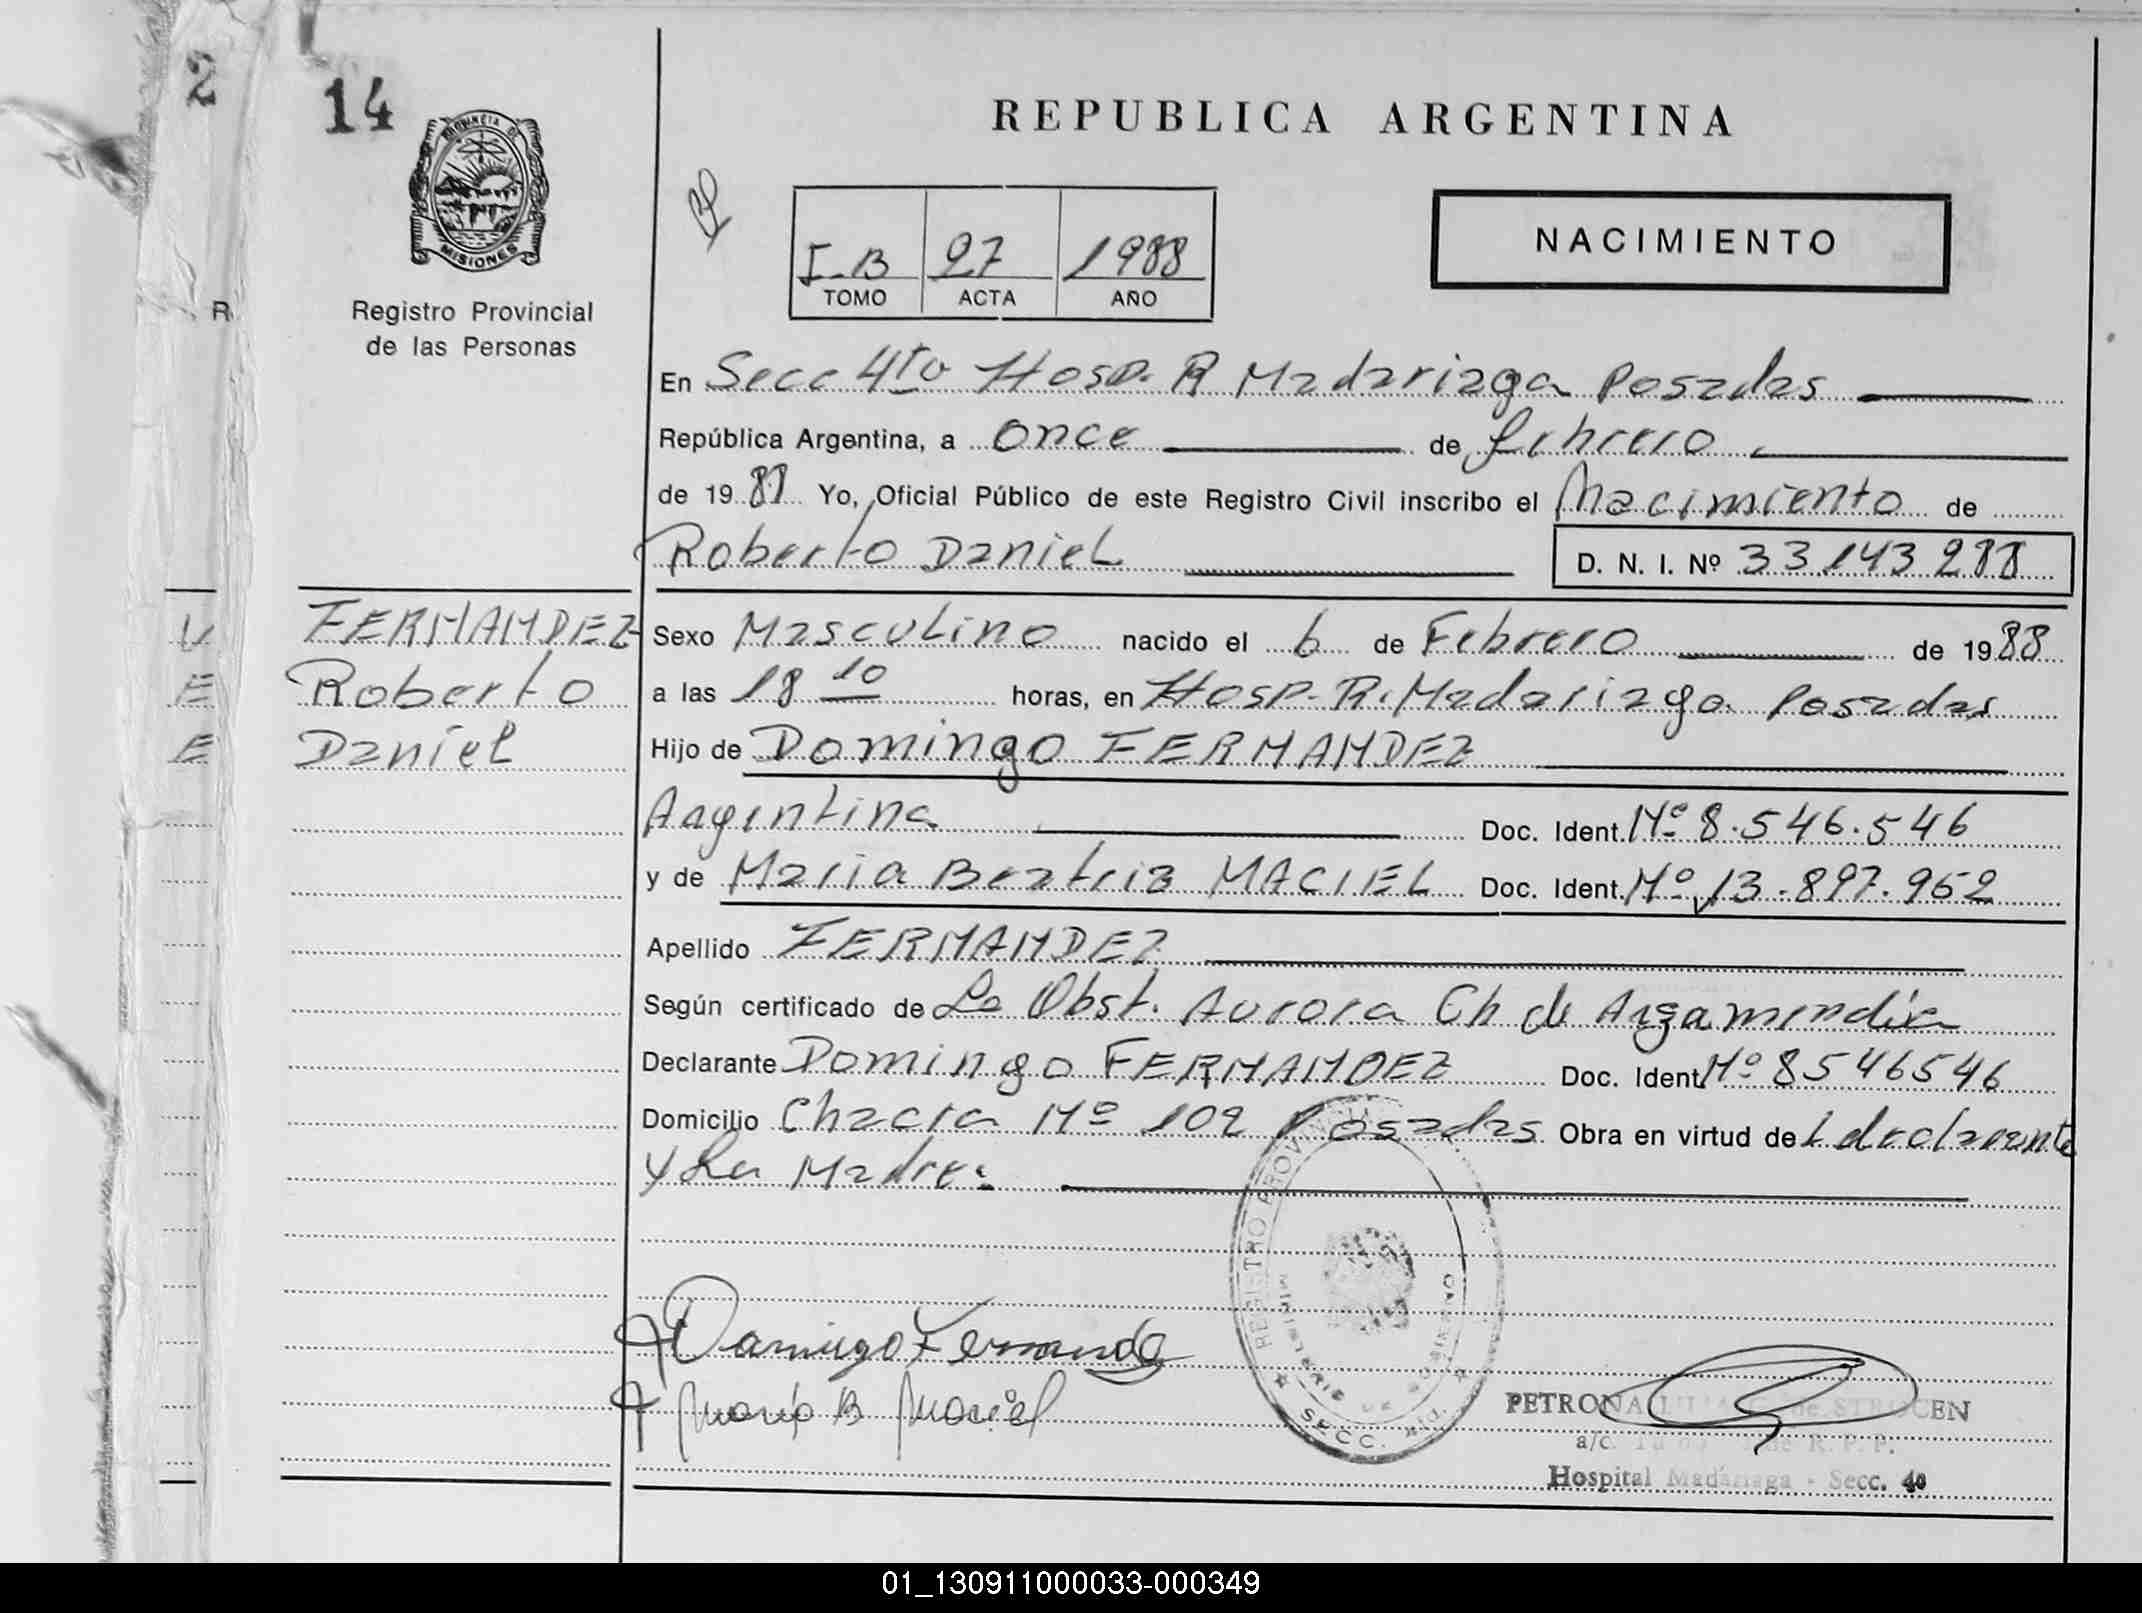 2
14
PROVINCIA DE
MISIONES
R
Registro Provincial
de las Personas
REPUBLICA ARGENTINA
I-B 27 1988
TOMO ACTA AÑO
NACIMIENTO
En Secc 4to Hosp. R Madariaga Posadas
República Argentina, a once de febrero
de 1988 Yo, Oficial Público de este Registro Civil inscribo el Nacimiento de
Roberto Daniel
D. N. I. Nº 33 143 288
FERNANDEZ
Roberto
Daniel
Sexo Masculino nacido el 6 de Febrero de 1988
a las 18 10 horas, en Hosp. R. Madariaga Posadas
Hijo de Domingo FERNANDEZ
Argentina Doc. Ident. Nº 8.546.546
y de Maria Beatriz MACIEL Doc. Ident. Nº 13.897.952
Apellido FERNANDEZ
Según certificado de La Obst. Aurora Ch de Argamendia
Declarante Domingo FERNANDEZ Doc. Ident Nº 8546546
Domicilio Chacra Nº 102 Posadas Obra en virtud de L declarante
y La Madre:
Domingo Fernande
Maria B Maciel
REGISTRO PROVIN
SECC.
PETRONA de STROCEN
a/c. R. P. P.
Hospital Madariaga - Secc. 4a
01_130911000033-000349